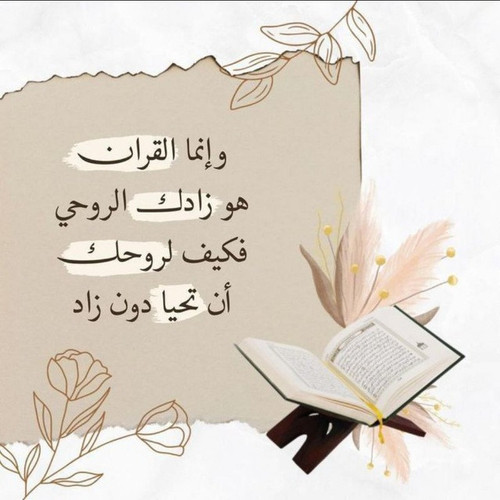 وإنما القران
هو زادك الروحي
فكيف لروحك
أن تحيا دون زاد